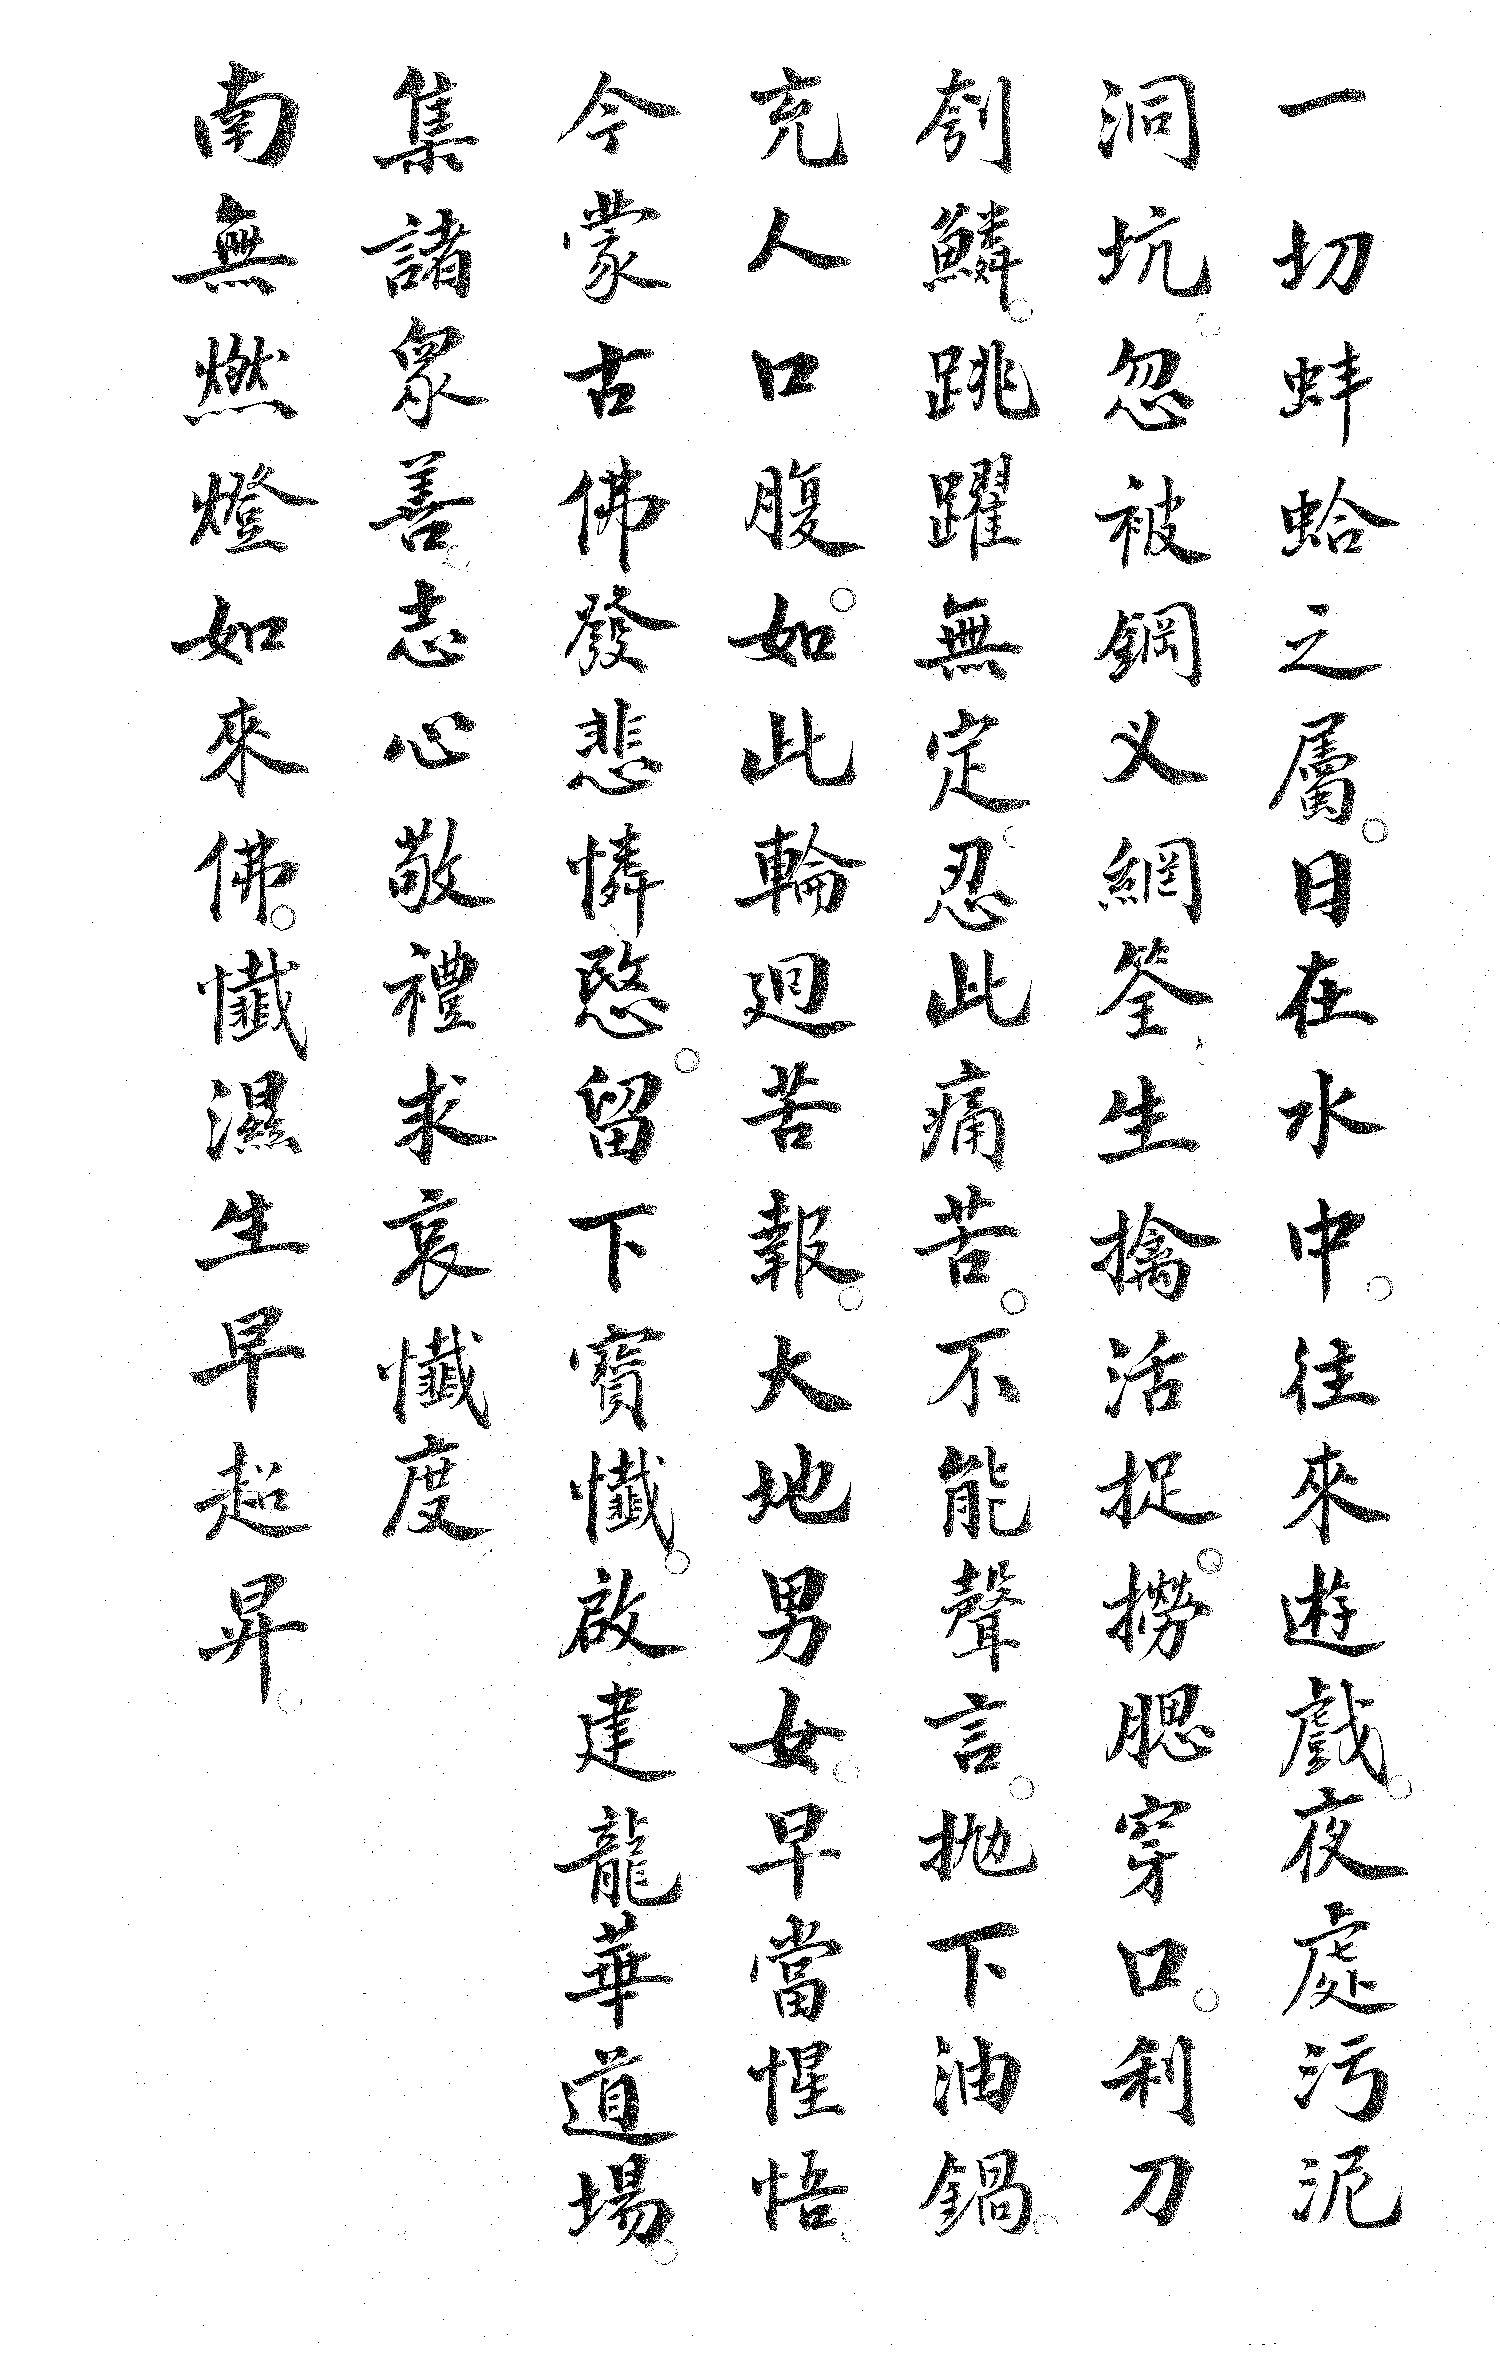 一切蚌蛤之屬。日在水中。往來遊戲。夜處污泥
洞坑。忽被鋼义網筌生擒活捉。撈腮穿口。利刀
刳鱗。跳躍無定。忍此痛苦。不能聲言。拋下油鍋。
充人口腹。如此輪迴苦報。大地男女。早當惺悟。
今蒙古佛發悲憐愍。留下寶懺。啟建龍華道場。
集諸眾善。志心敬禮求哀懺度
南無燃燈如來佛。懺濕生早超昇。